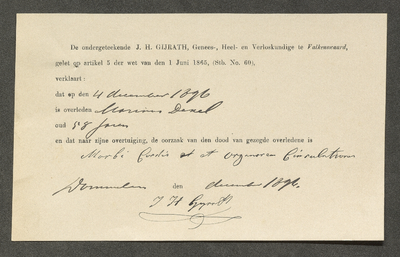 De ondergeteekende J. H. GIJRATH, Genees-, Heel- en Verloskundige te Valkenswaard,
gelet op artikel 5 der wet van den 1 Juni 1865, (Stb. No. 60),
verklaart:
dat op den 4 december 1896
is overleden Marinus
oud 58 Jaren
en dat naar zijne overtuiging, de oorzaak van den dood van gezegde overledene is
Morbi Cordis et organorum Circulationis
Dommelen den december 1896.
J H Gijrath